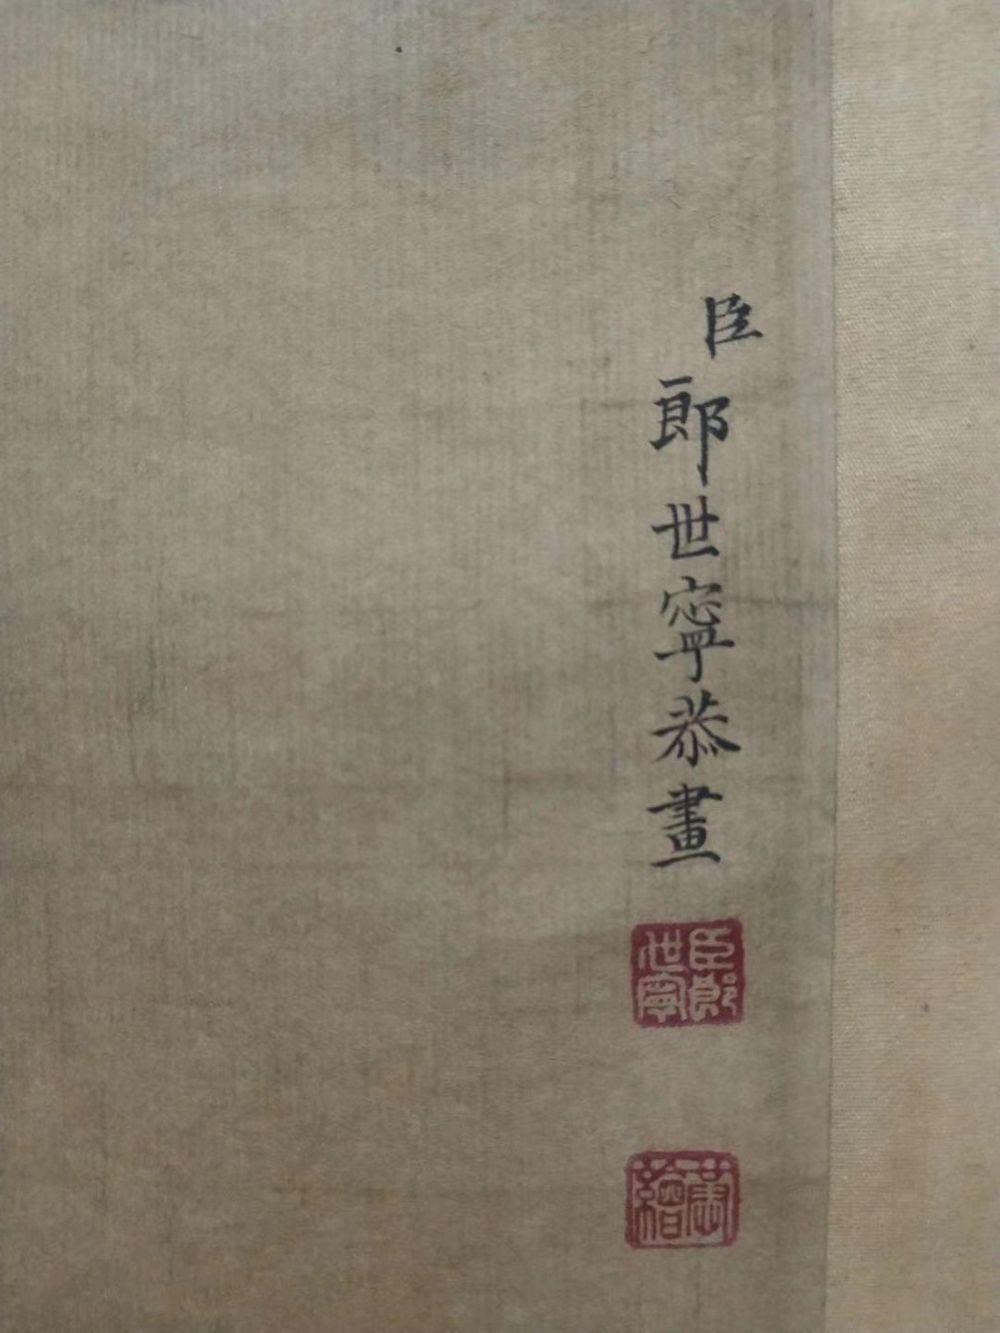 臣郎世寧恭畫
臣郎
世寧
繪